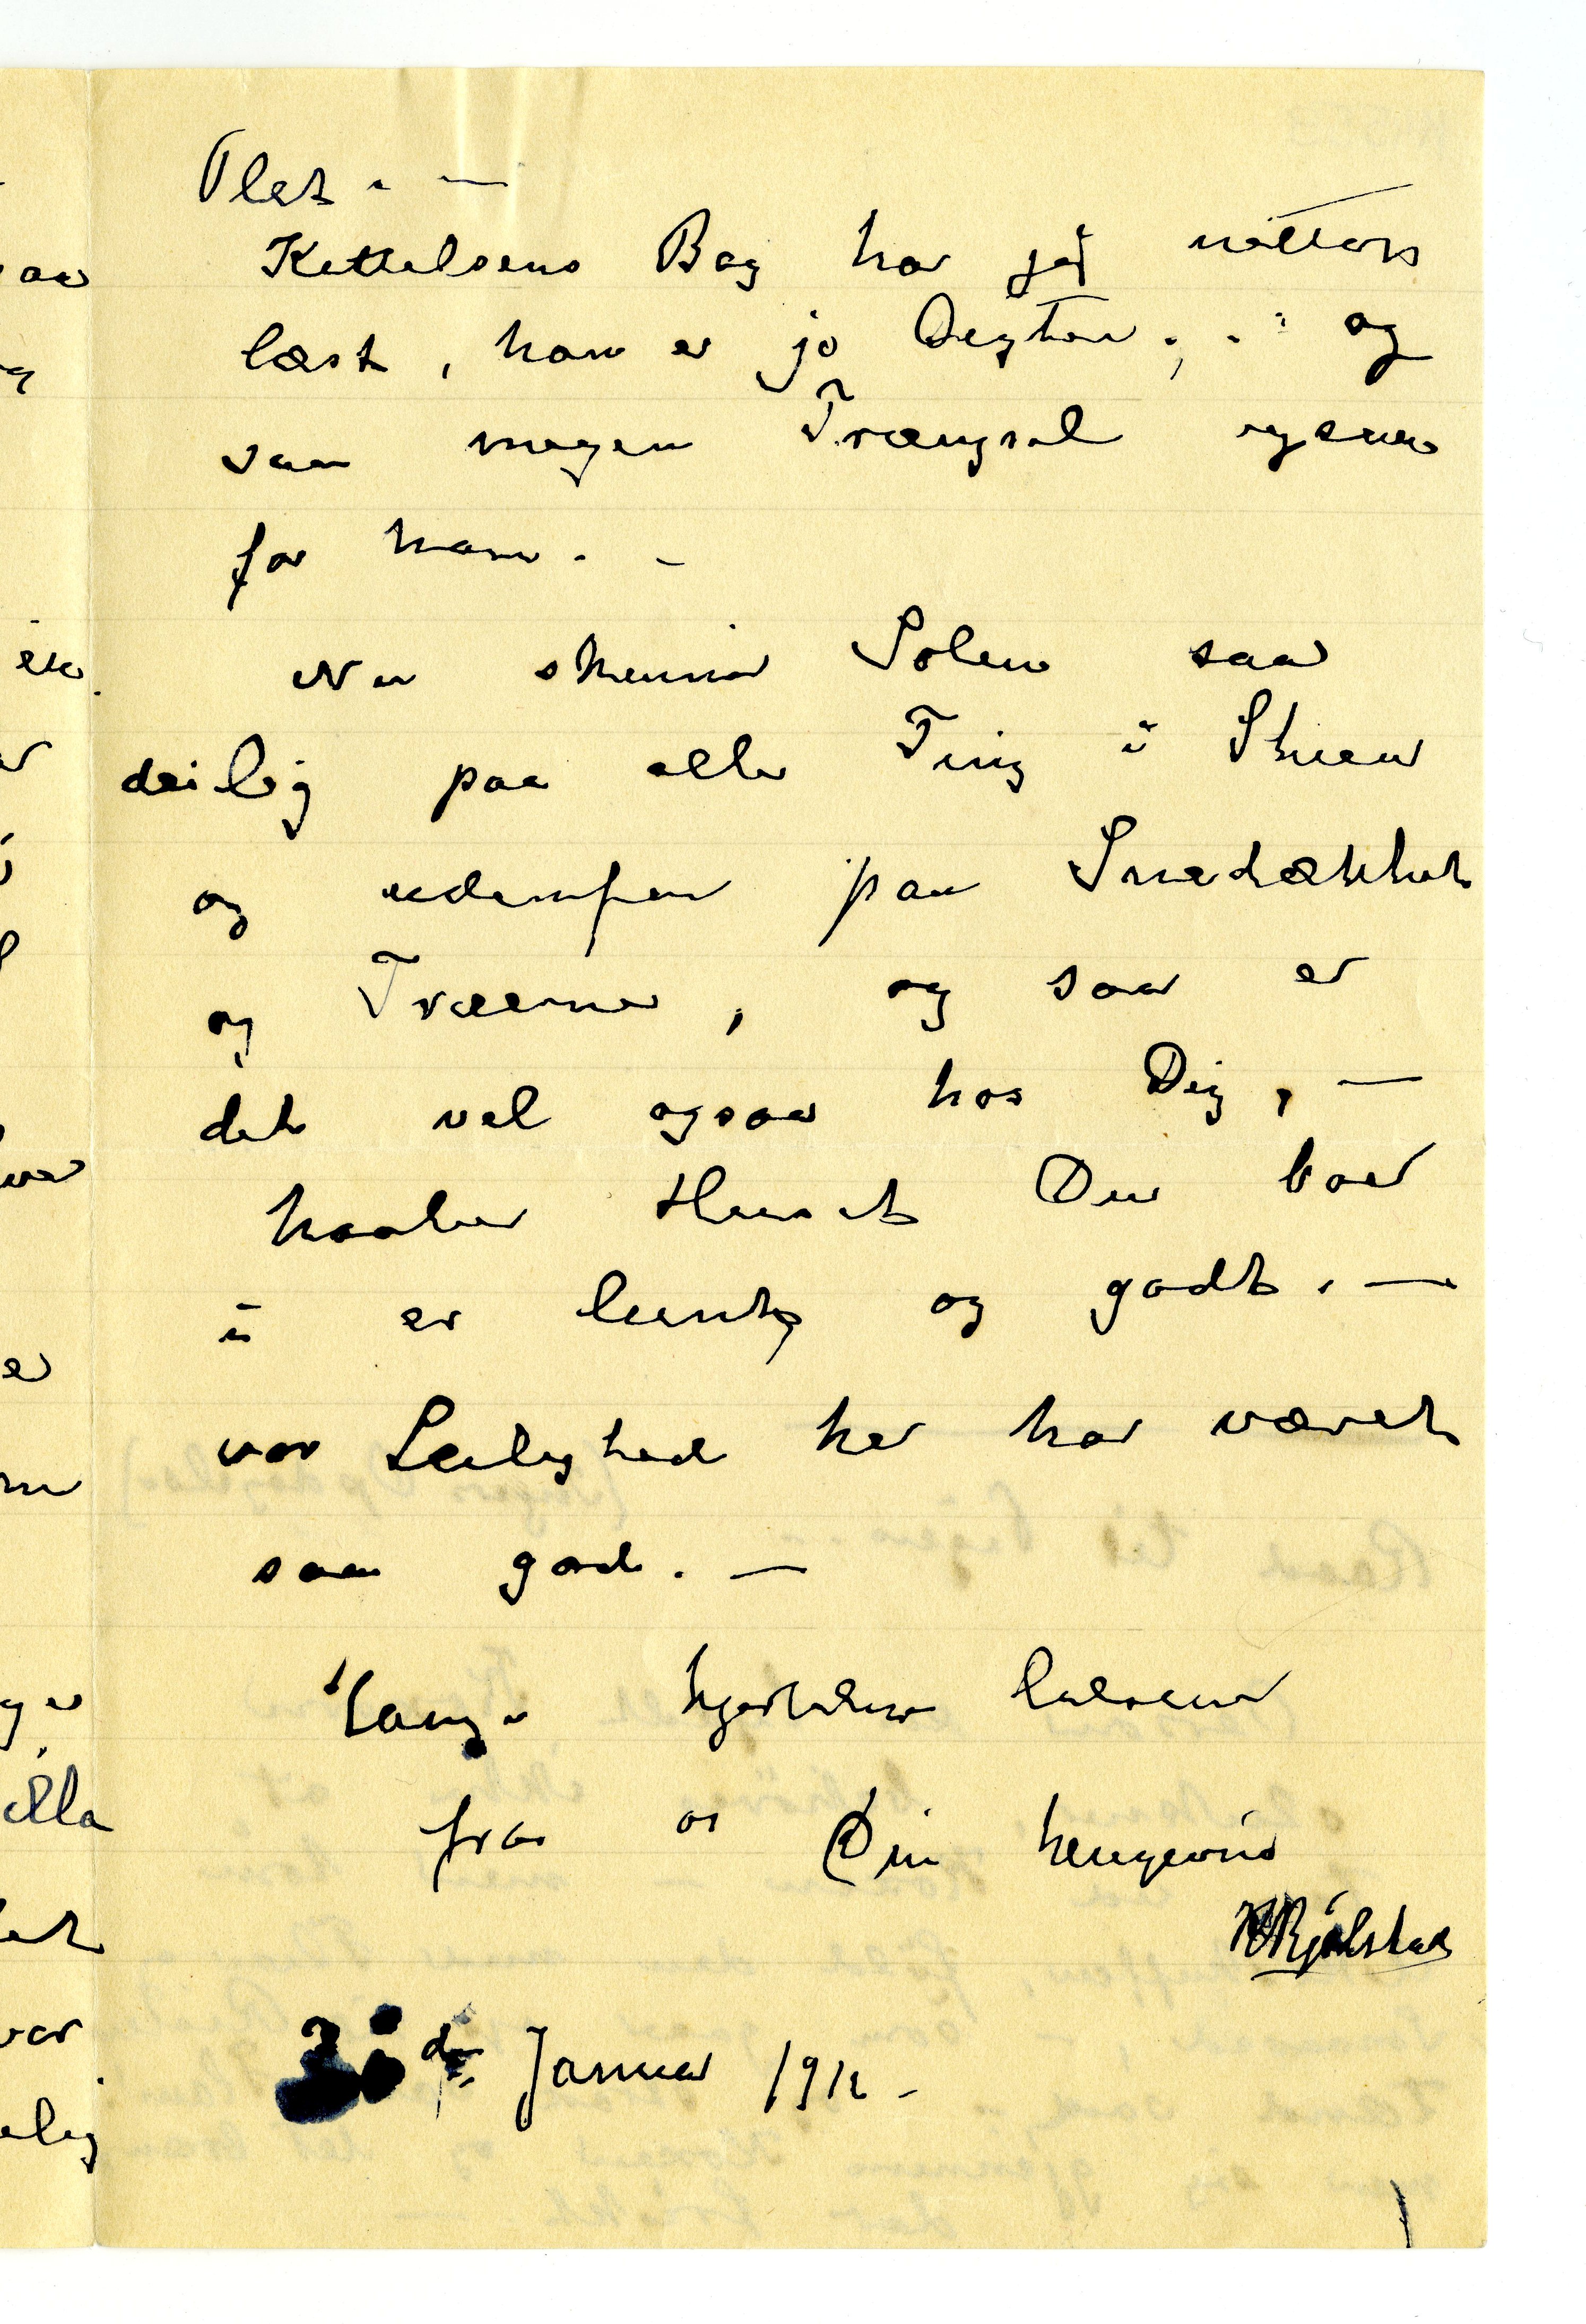 Plet. —
Kittelsens Bog har jeg netop
læst, han er jo Degter; . og
saa megen Trængsel
for ham. —
Nu skinner Solen saa
deilig paa alle Ting i Stuen
og udenfor paa Snedækket
og Træerne, og saa er
det vel ogsaa hos Dig, —
haaber Huset Du bor
i er lunt og godt. —
vor Leilighed her har været
saa god. —
Mange hjertelige hilsener
fra os Din hengivne
30 de Januar 1912 —